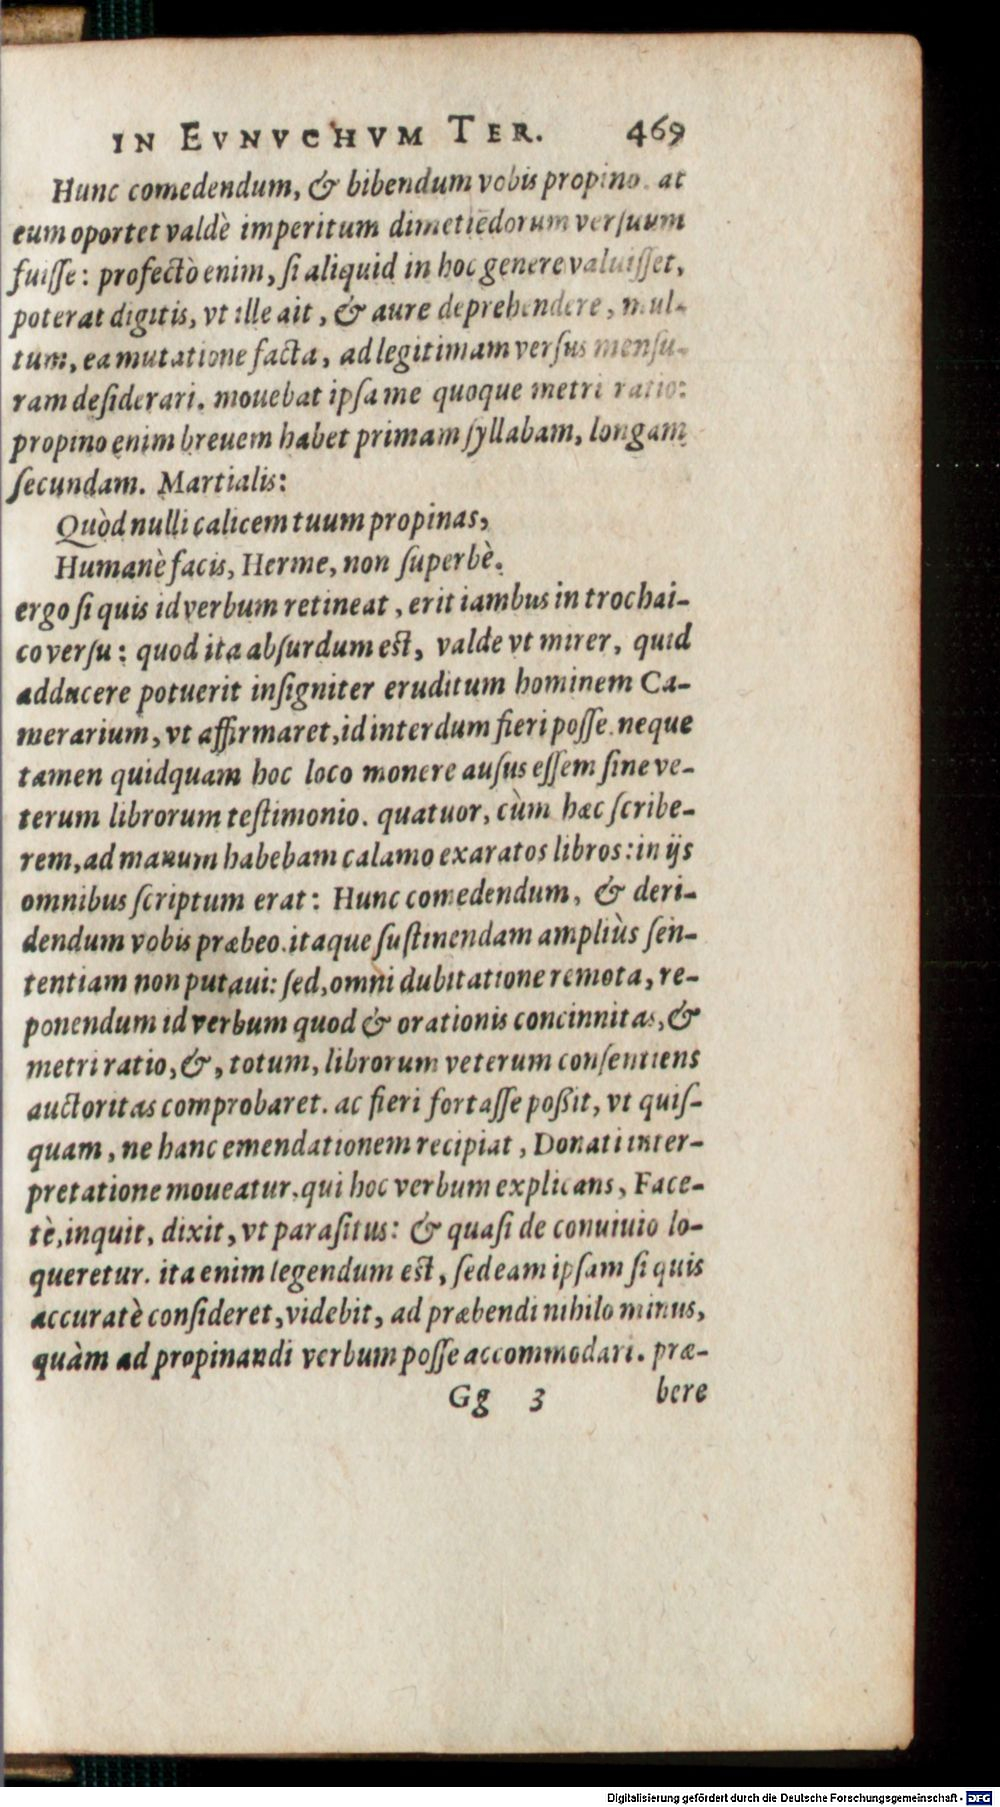 IN EVNVCHVM TER. 469
Hunc comedendum, & bibendum vobis propino. at
eum oportet valdè imperitum dimetiēdorum verſuum
fuiſſe: profectò enim, ſi aliquid in hoc genere valuiſſet,
poterat digitis, vt ille ait, & aure deprehendere, mul-
tum, ea mutatione facta, ad legitimam verſus menſu-
ram deſiderari. mouebat ipſa me quoque metri ratio:
propino enim breuem habet primam ſyllabam, longam
ſecundam. Martialis:
Quòd nulli calicem tuum propinas,
Humanè facis, Herme, non ſuperbè.
ergo ſi quis id verbum retineat, erit iambus in trochai-
co verſu: quod ita abſurdum eſt, valde vt mirer, quid
adducere potuerit inſigniter eruditum hominem Ca-
merarium, vt affirmaret, id interdum fieri poſſe. neque
tamen quidquam hoc loco monere auſus eſſem ſine ve-
terum librorum teſtimonio. quatuor, cùm hæc ſcribe-
rem, ad manum habebam calamo exaratos libros: in ijs
omnibus ſcriptum erat: Hunc comedendum, & deri-
dendum vobis præbeo. itaque ſuſtinendam ampliùs ſen-
tentiam non putaui: ſed, omni dubitatione remota, re-
ponendum id verbum quod & orationis concinnitas, &
metri ratio, &, totum, librorum veterum conſentiens
auctoritas comprobaret. ac fieri fortaſſe poßit, vt quiſ-
quam, ne hanc emendationem recipiat, Donati inter-
pretatione moueatur, qui hoc verbum explicans, Face-
tè, inquit, dixit, vt paraſitus: & quaſi de conuiuio lo-
queretur. ita enim legendum eſt, ſed eam ipſam ſi quis
accuratè conſideret, videbit, ad præbendi nihilo minus,
quàm ad propinandi verbum poſſe accommodari. præ-
Gg 3 bere
Digitalisierung gefördert durch die Deutsche Forschungsgemeinschaft - DFG